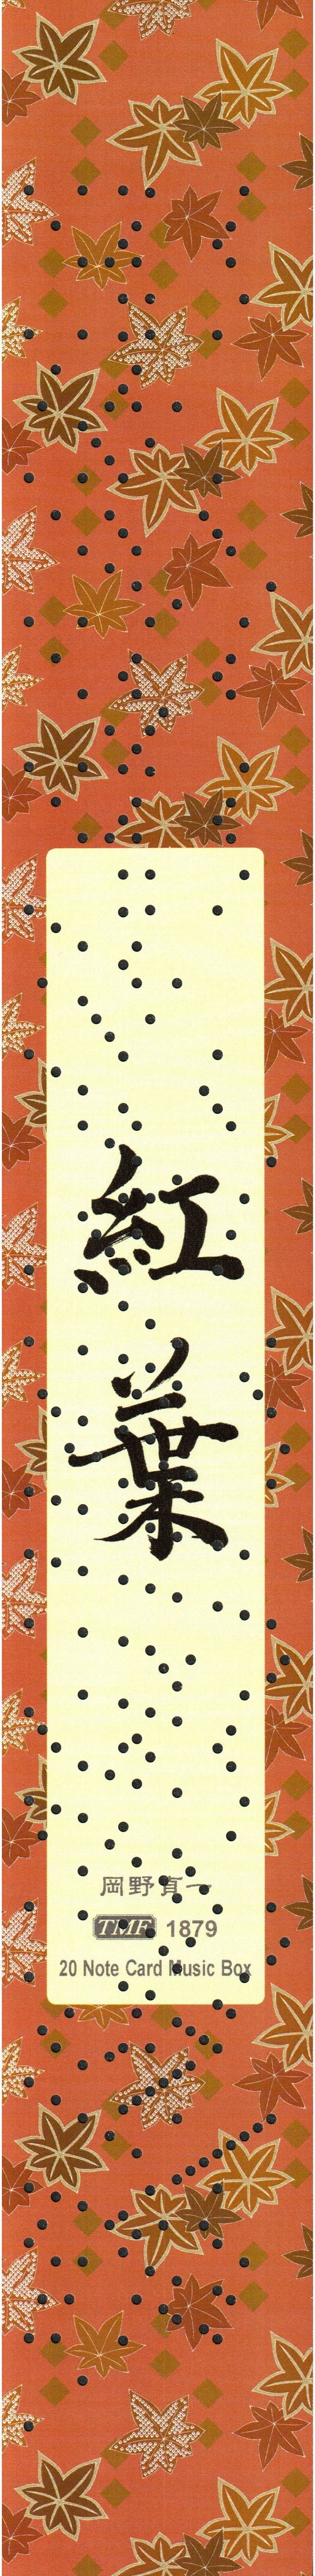 紅
葉
岡野貞一
TMF 1879
20 Note Card Music Box